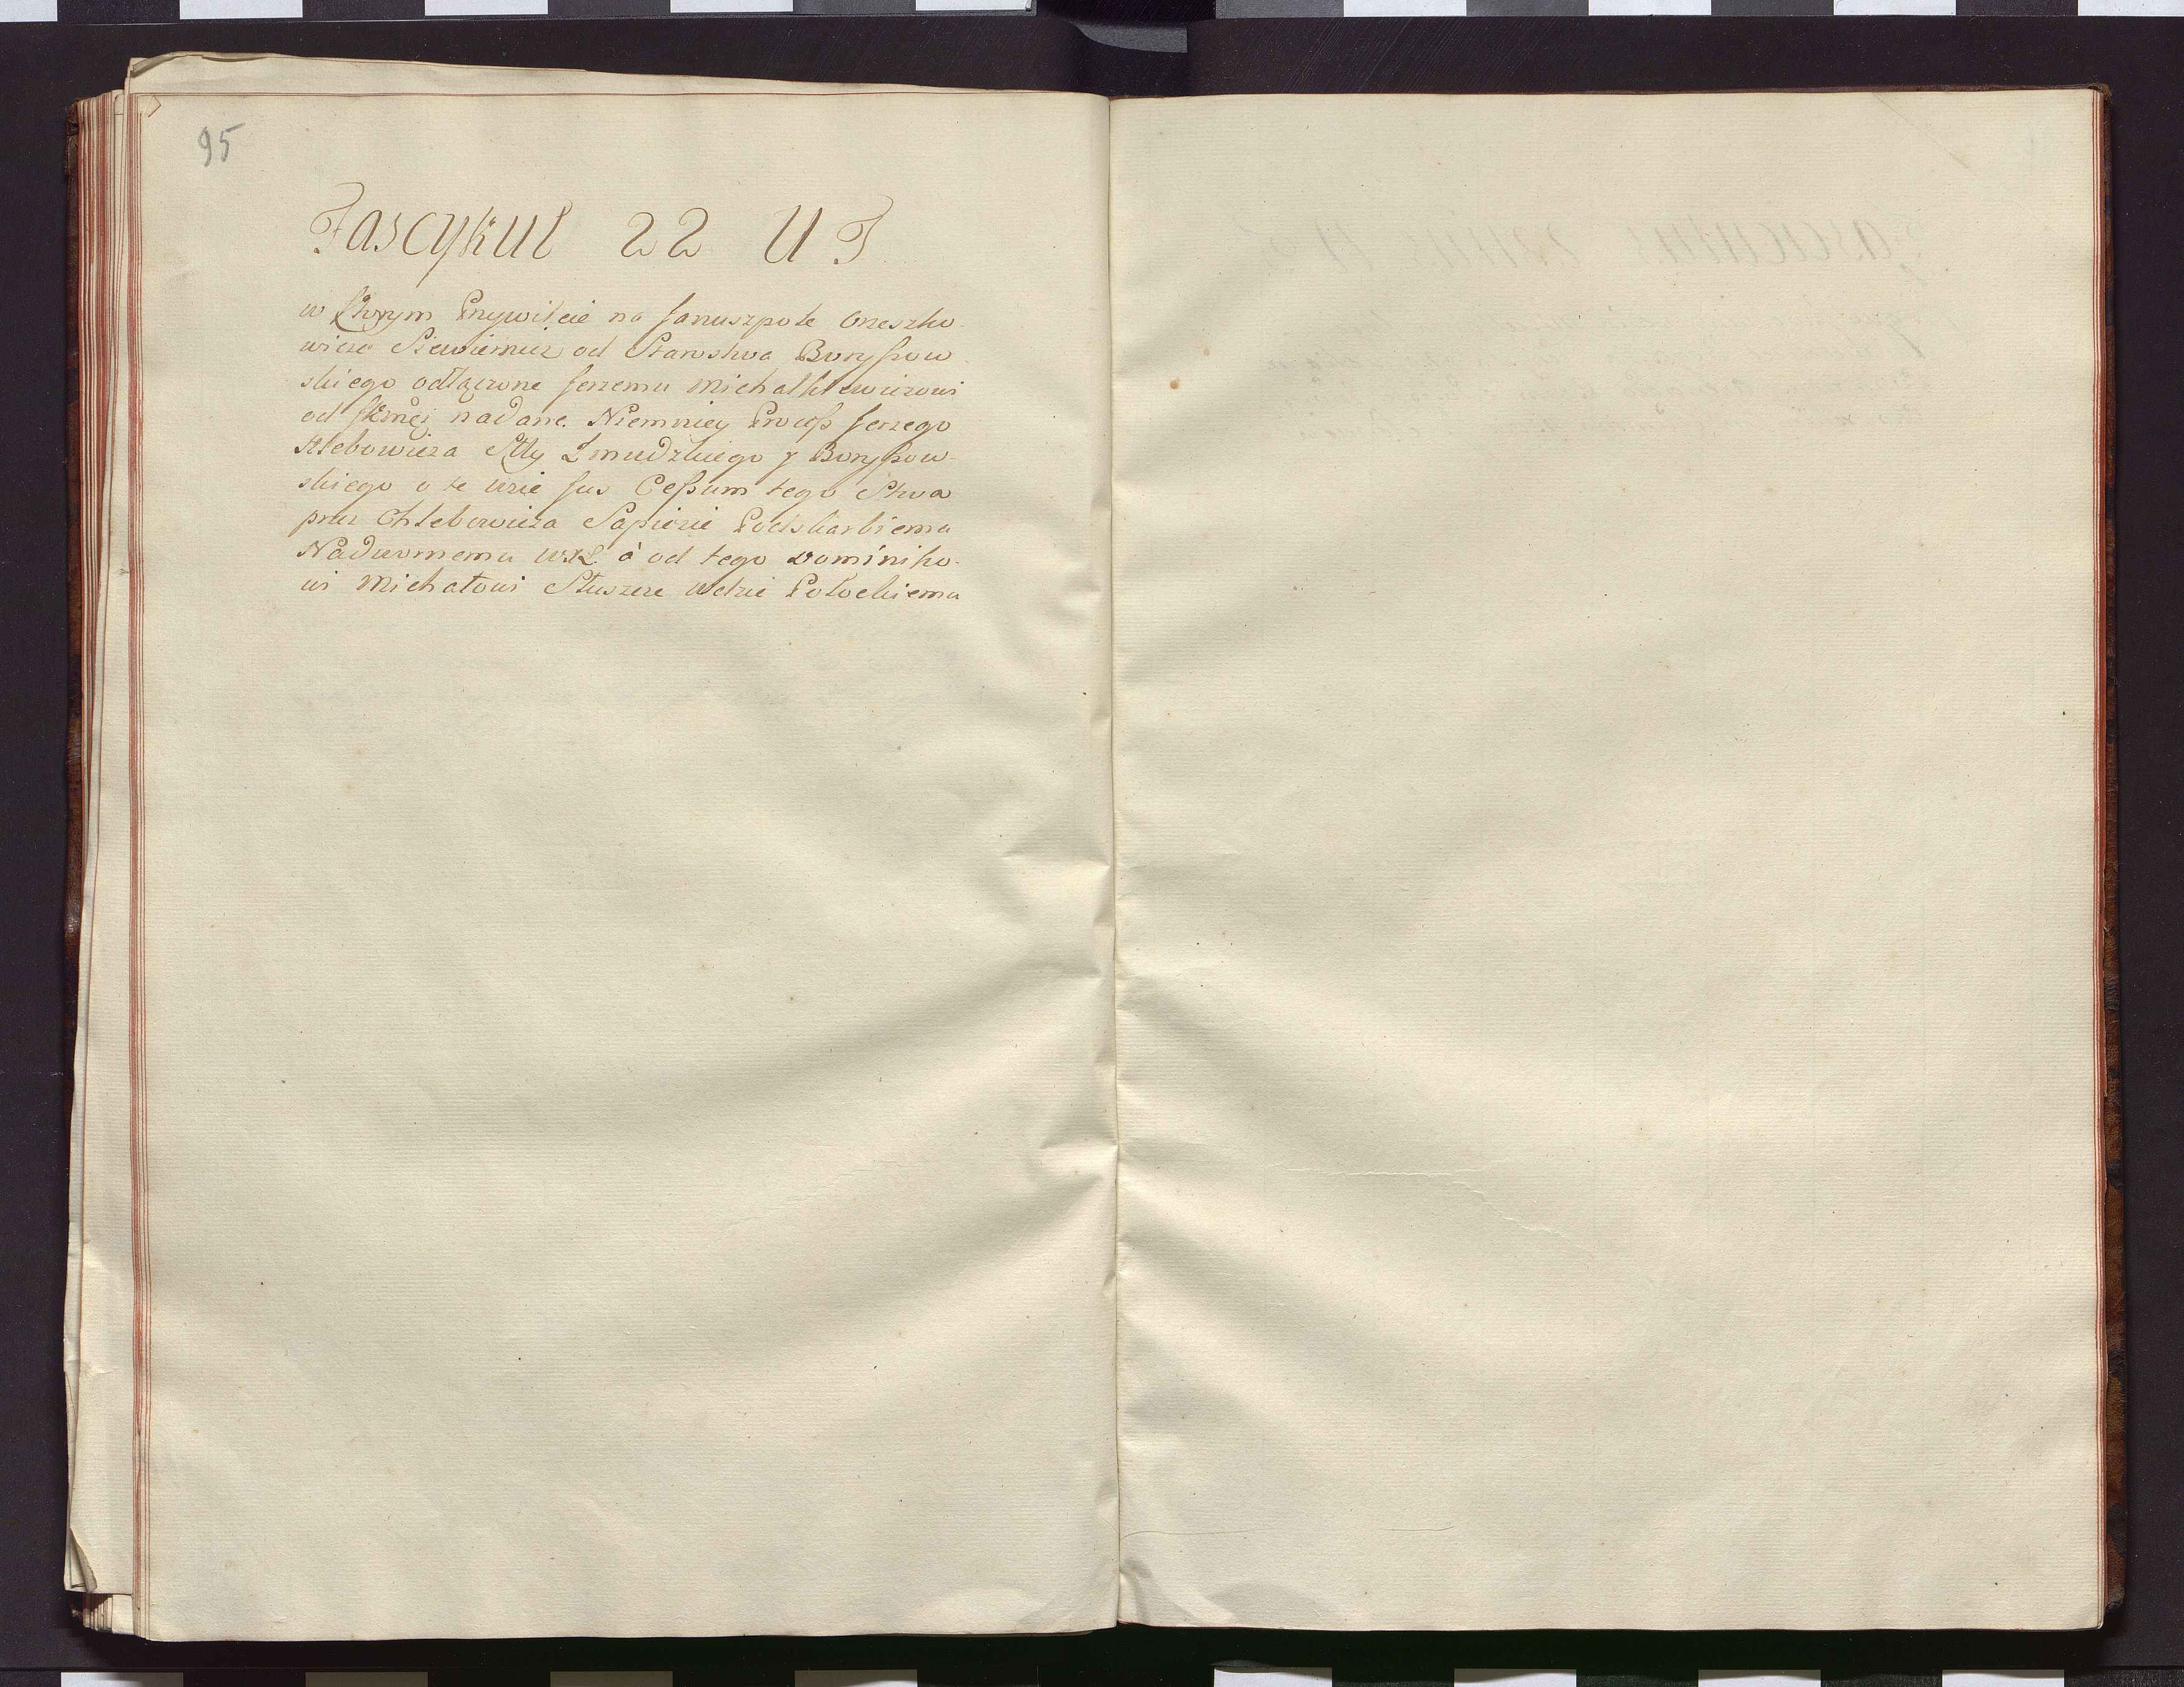 95
Fascykuł 22 U T
w Którym Przywileie na Januszpole Oreszko-
wicze od Starostwa Borysow
skiego odłączone Jerzemu Michałkiewiczowi
od nadane. Niemniey Process Jerzego
Hlebowicza Stty Zmudzkiego y Borysow-
skiego o te uzie Jus Cessum tego Stwa
przez Chlebowicza Sapiezie Podskarbiemu
Nadwornemu WXL. à od tego Dominiko-
wi Michałowi Słuszcze Wdzie Połockiemu